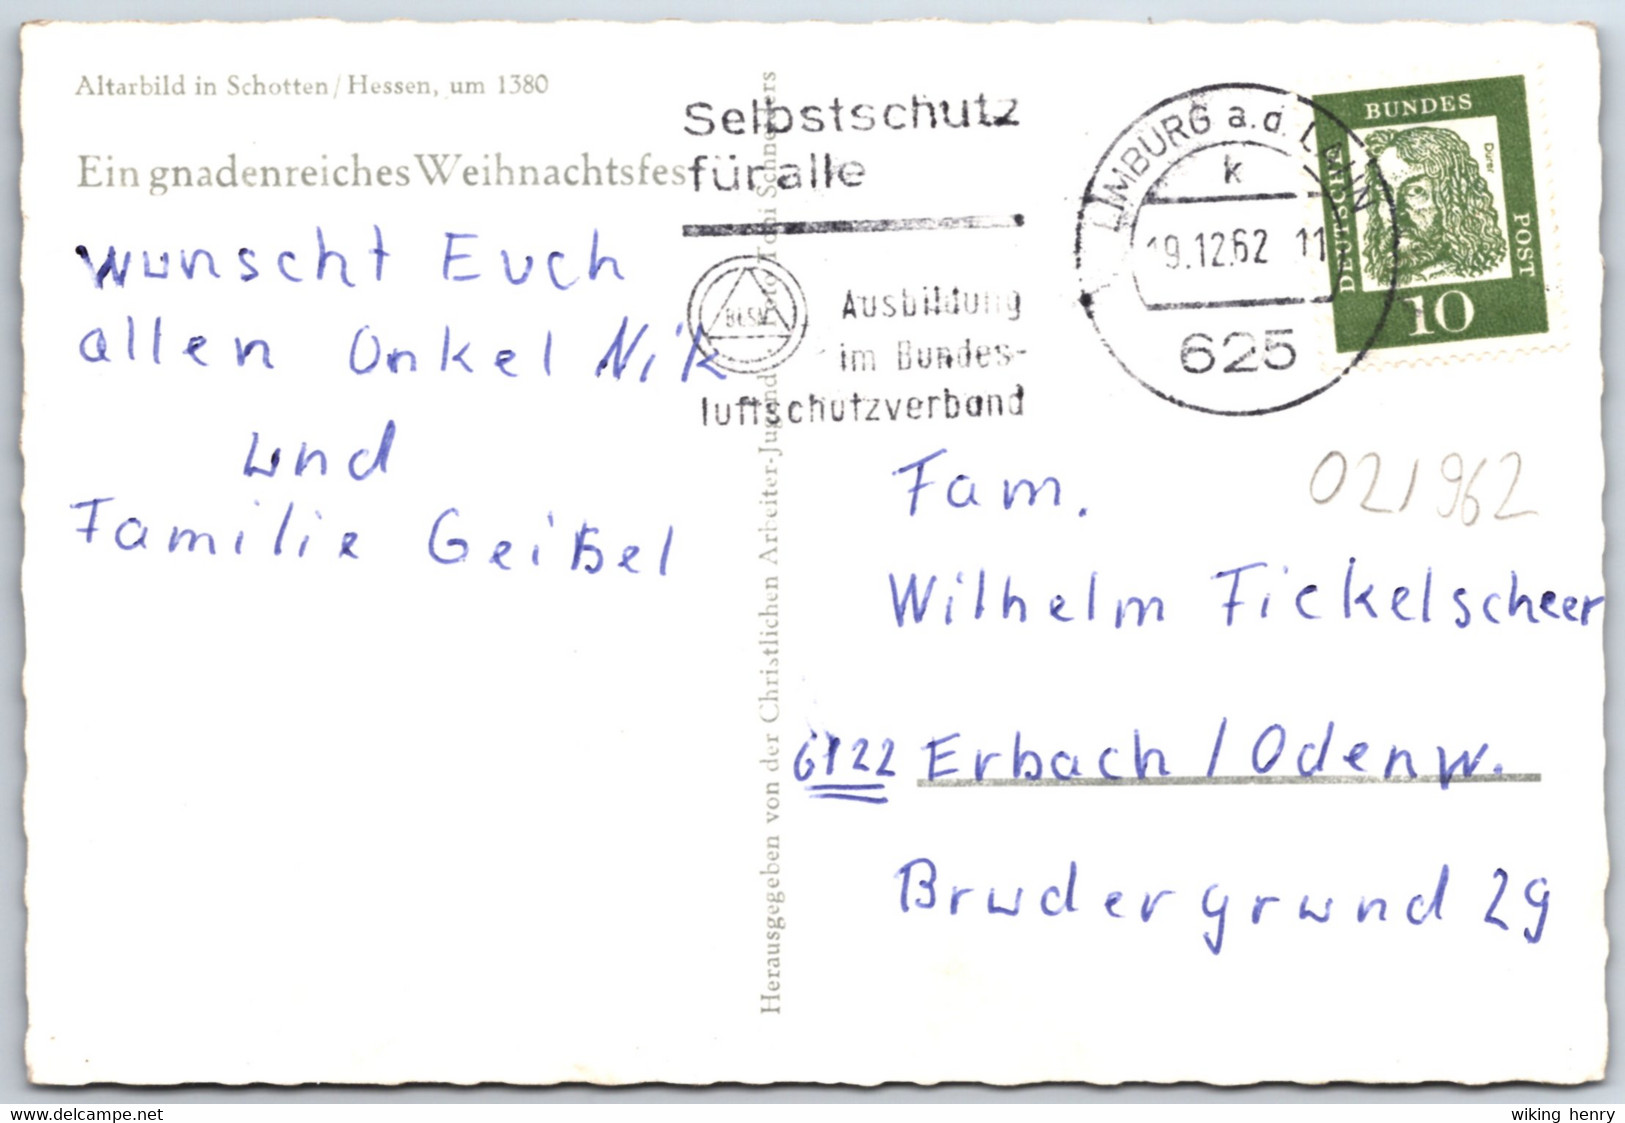 Altarbild in Schotten/Hessen, um 1380
Ein gnadenreiches Weihnachtsfes
wunscht Euch
allen Onkel Nik
und
Familie Geißel
Herausgegeben von der Christlichen Arbeiter-Jugend
Selbstschutz
für alle
BLSV
Ausbildung
im Bundes-
luftschutzverband
LIMBURG a.d. LAHN
k
19.12.62 11
625
DEUTSCHE BUNDES POST
Dürer
10
021962
Fam.
Wilhelm Fickelscheer
6122 Erbach / Odenw.
Brudergrund 29
delcampe.net
wiking henry